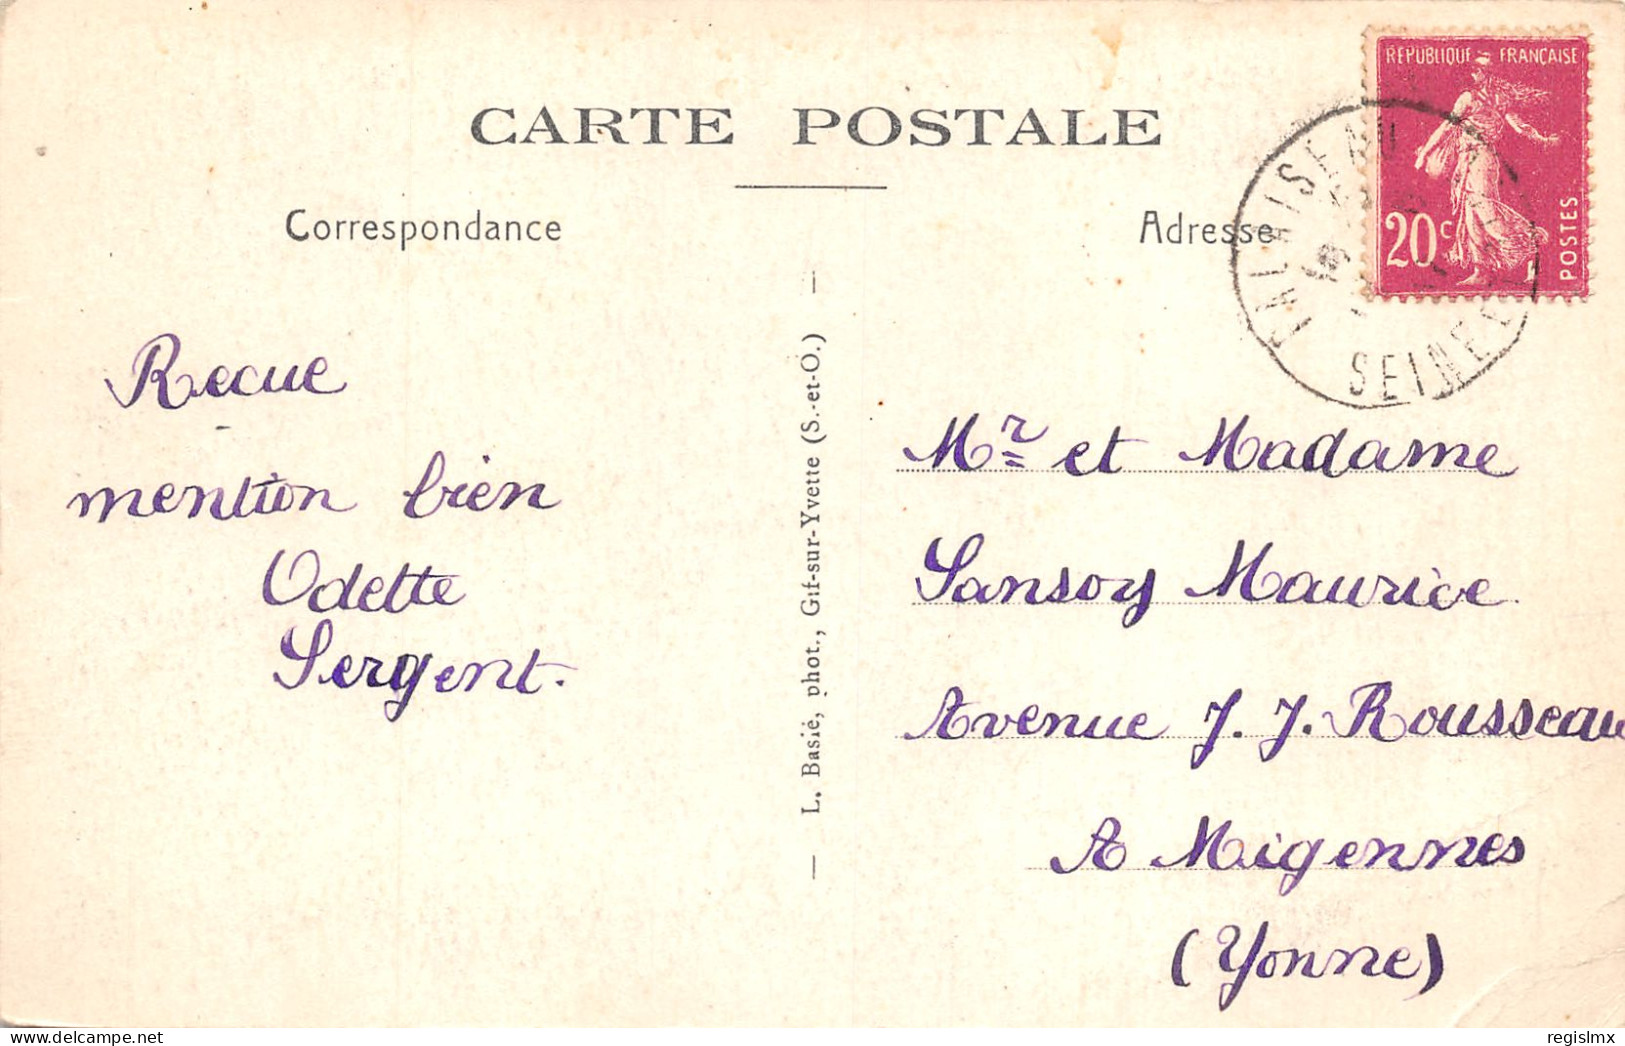 CARTE POSTALE
Correspondance
Adresse
RÉPUBLIQUE FRANÇAISE
20c
POSTES
PALAISEAU
SEINE
Recue
mention bien
Odette
Sergent.
L. Basié, phot., Gif-sur-Yvette (S.-et-O.)
Mr et Madame
Sansoy Maurice
Avenue J. J. Rousseau
A Migennes
(Yonne)
regislmx